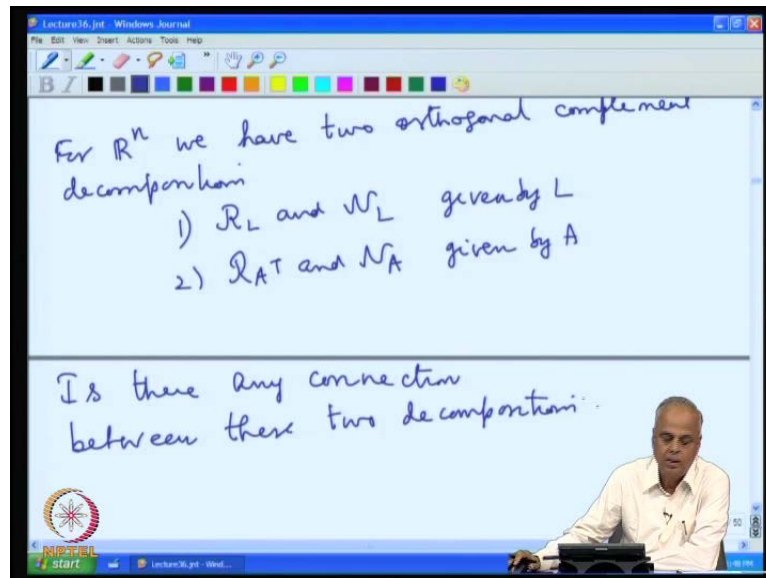 Lecture36.jnt - Windows Journal
File Edit View Insert Actions Tools Help
B I
For ℝⁿ we have two orthogonal complement
decomposition
1) R_L and N_L given by L
2) R_Aᵀ and N_A given by A
Is there any connection
between these two decomposition.
NPTEL
start Lecture36.jnt - Wind...